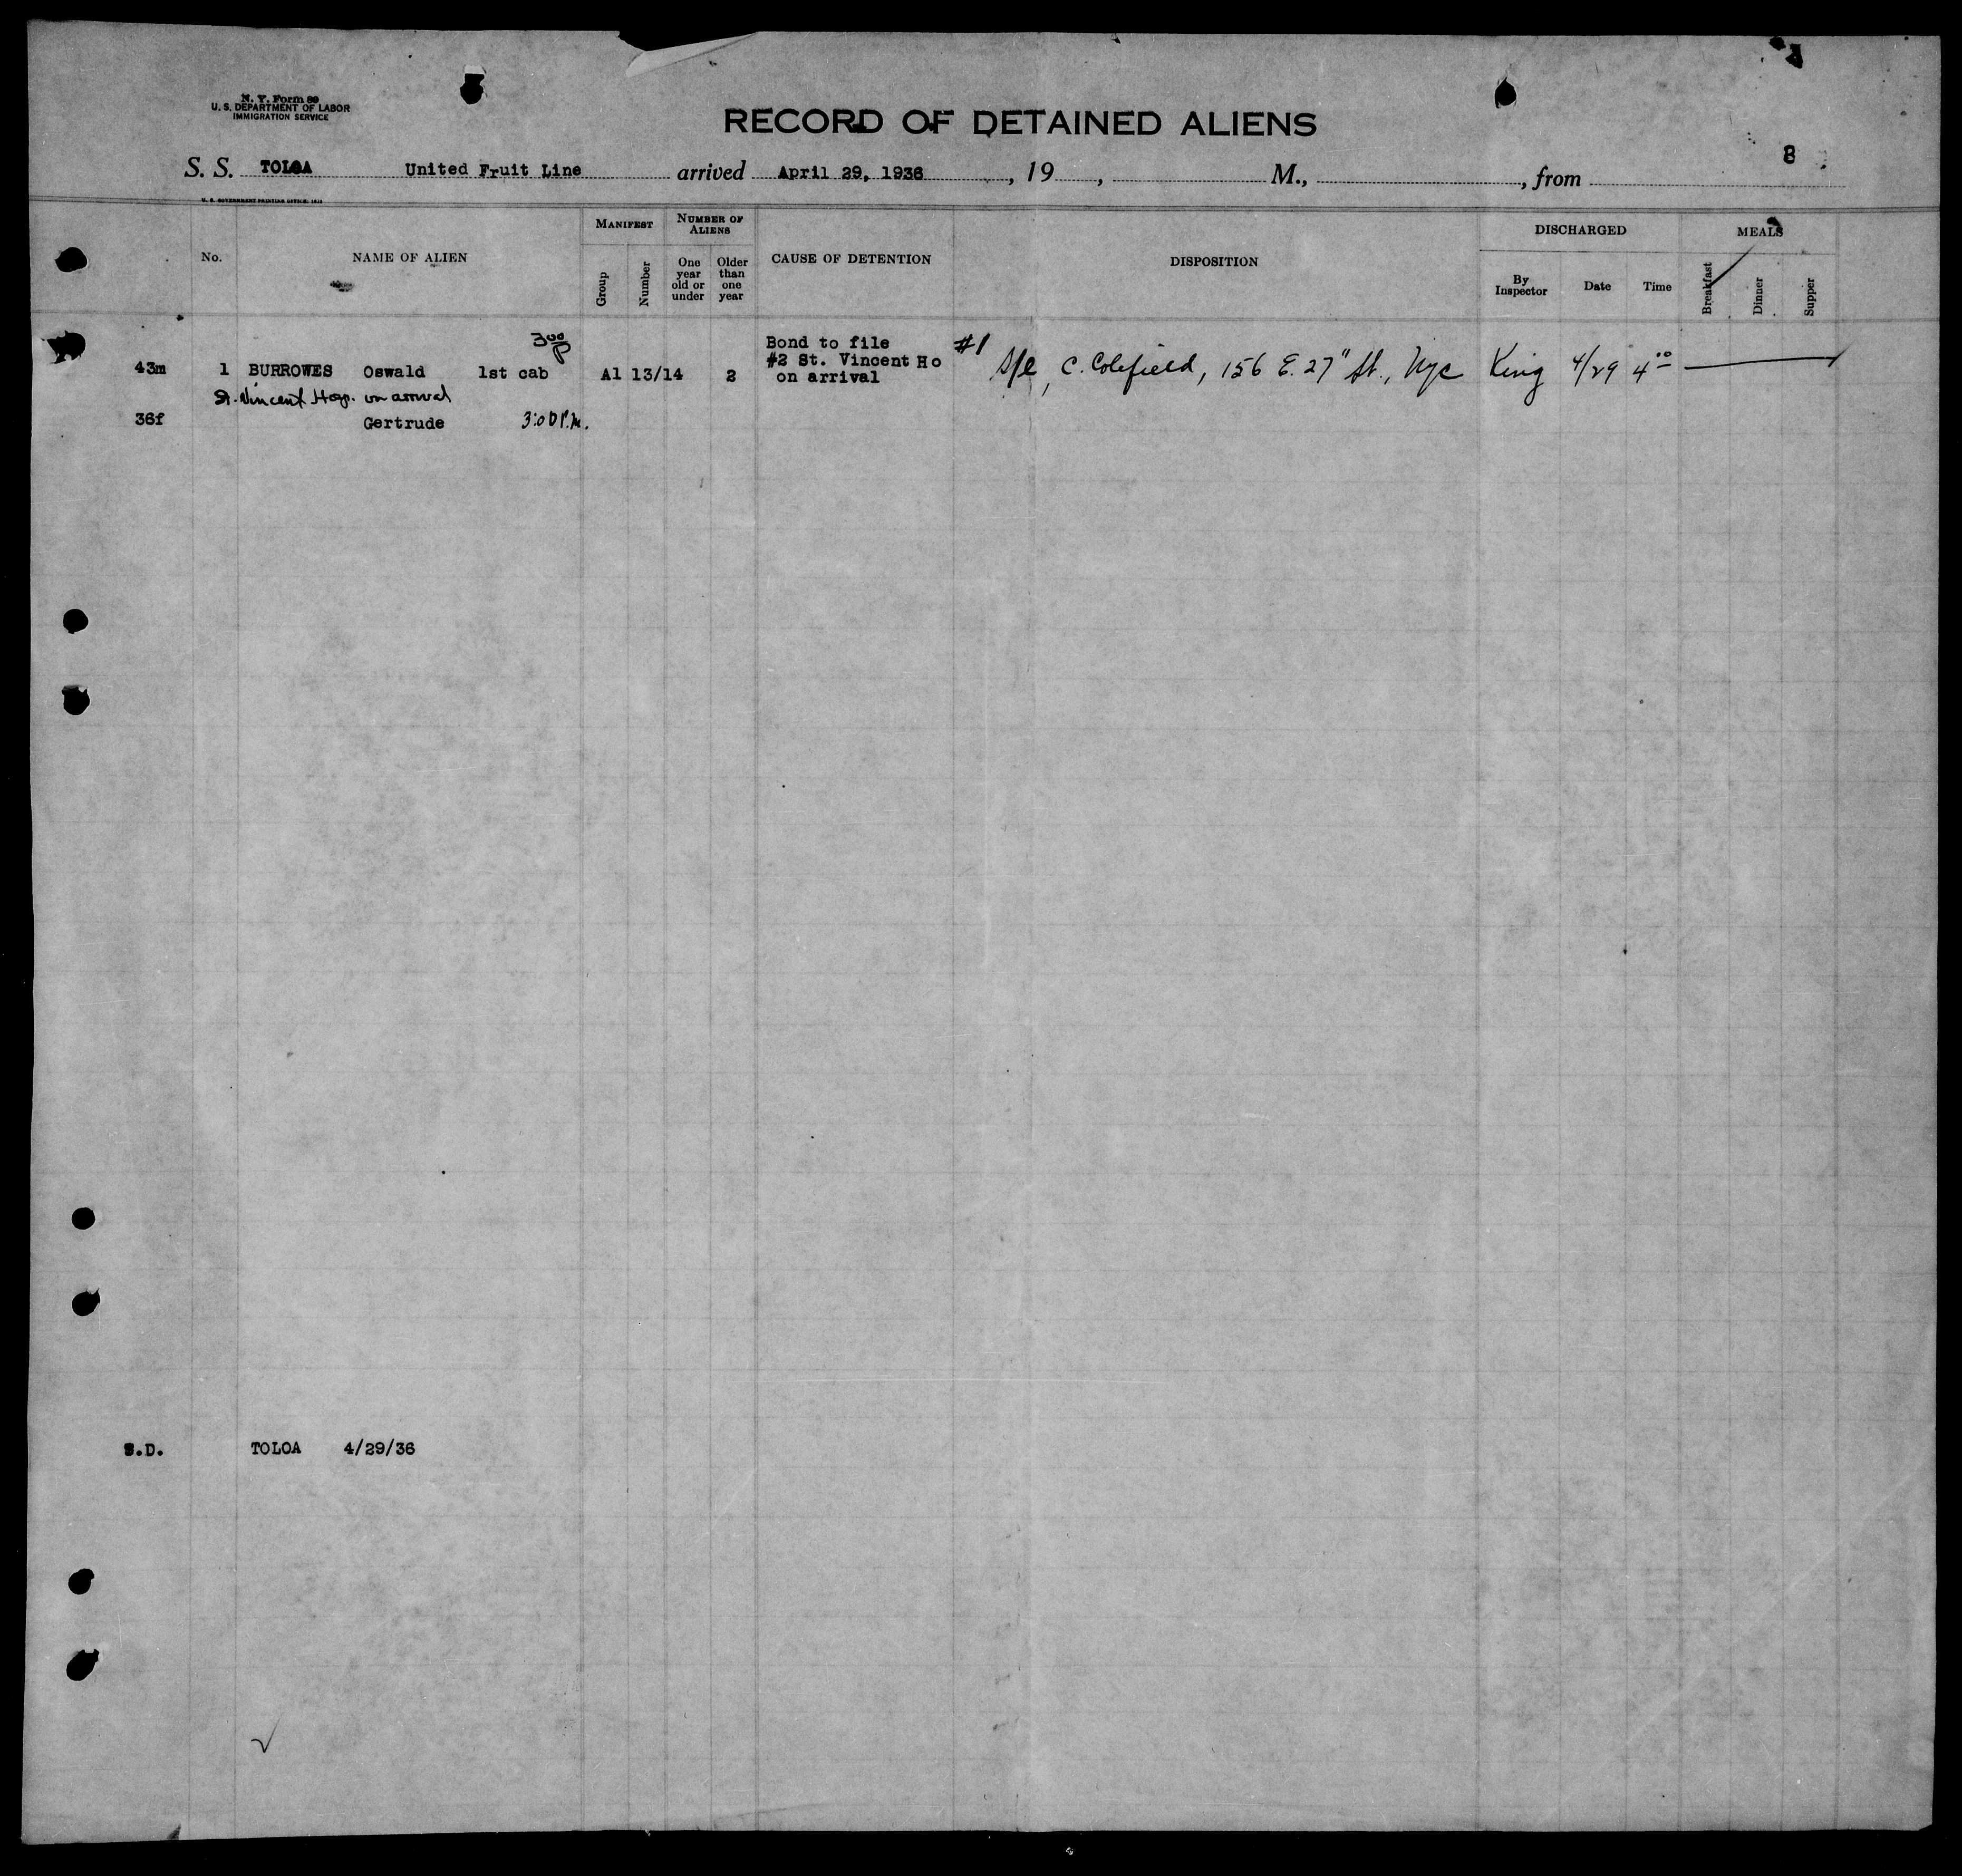 N. Y. Form 89
U. S. DEPARTMENT OF LABOR
IMMIGRATION SERVICE
RECORD OF DETAINED ALIENS
8
S. S. TOLOA United Fruit Line arrived April 29, 1936, 19, M., , from
MANIFEST NUMBER OF ALIENS DISCHARGED MEALS
No. NAME OF ALIEN Group Number One year old or under Older than one year CAUSE OF DETENTION DISPOSITION By Inspector Date Time Breakfast Dinner Supper
3 00 P
Bond to file #1
#2 St. Vincent Ho
on arrival
43m 1 BURROWES Oswald 1st cab A1 13/14 2 C. Colefield, 156 E. 27" St., Nyc King 4/29 4 00
St. Vincent Hosp. on arrival
36f Gertrude 3:00 P.M.
S.D. TOLOA 4/29/36